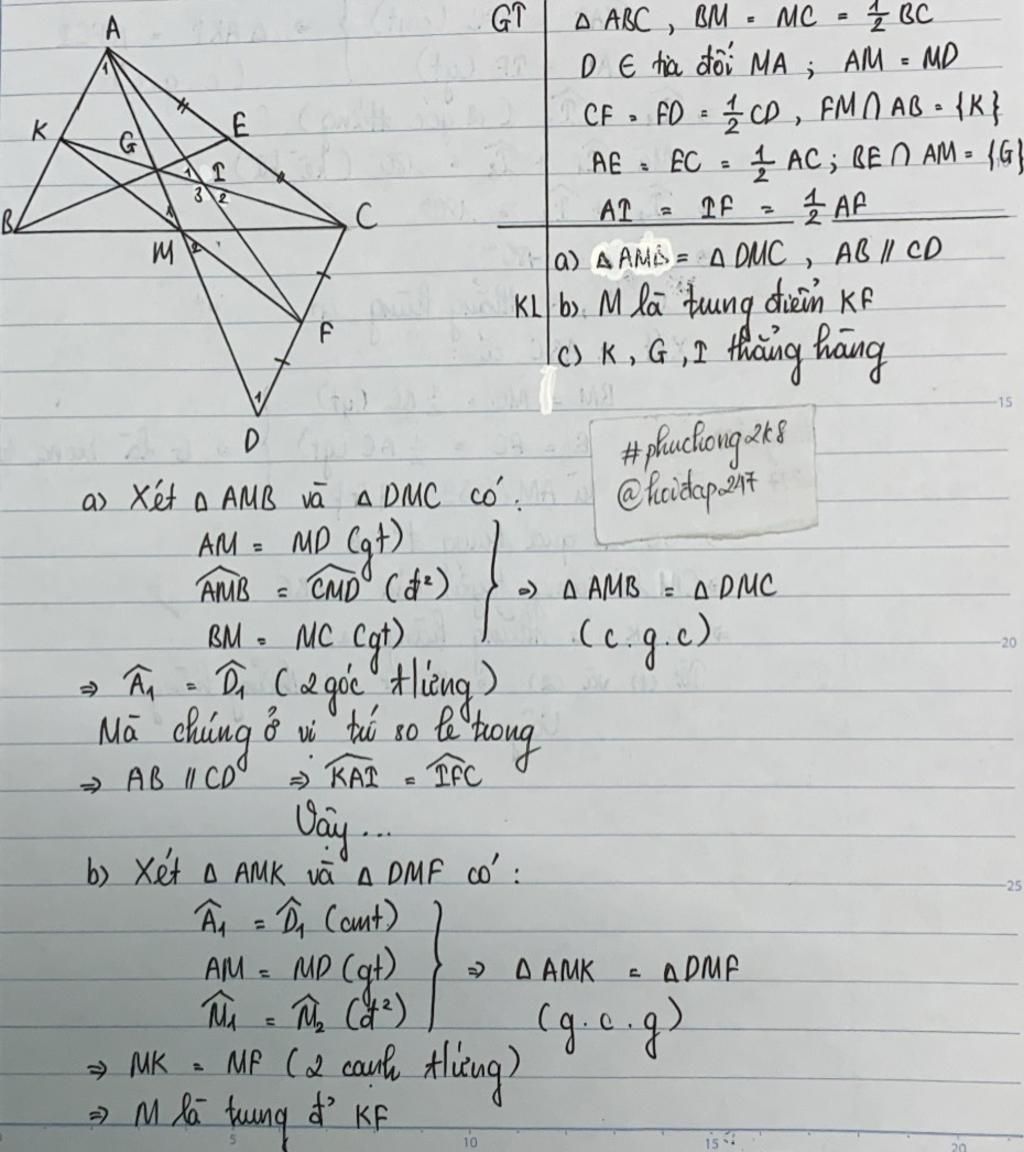 A
K
E
G
1
1
I
3 2
B
C
1
M
2
F
1
D
GT
Δ ABC , BM = MC = 1/2 BC
D ∈ tia đối MA ; AM = MD
CF = FD = 1/2 CD , FM ∩ AB = {K}
AE = EC = 1/2 AC ; BE ∩ AM = {G}
AI = IF = 1/2 AF
KL
a) Δ AMB = Δ DMC , AB // CD
b). M là trung điểm KF
c) K , G , I thẳng hàng
15
#phuchong2k8
@hoidap247
a) Xét Δ AMB và Δ DMC có :
AM = MD (gt)
\widehat{AMB} = \widehat{CMD} (đ²)
BM = MC (gt)
⇒ Δ AMB = Δ DMC
(c.g.c)
20
⇒ \widehat{A₁} = \widehat{D₁} ( 2 góc tứng )
Mà chúng ở vị trí so le trong
⇒ AB // CD ⇒ \widehat{KAI} = \widehat{IFC}
Vậy ...
b) Xét Δ AMK và Δ DMF có :
25
\widehat{A₁} = \widehat{D₁} (cmt)
AM = MD (gt)
\widehat{M₁} = \widehat{M₂} (đ²)
⇒ Δ AMK = Δ DMF
(g.c.g)
⇒ MK = MF ( 2 cạnh tứng )
⇒ M là trung đ' KF
5 10 15 20